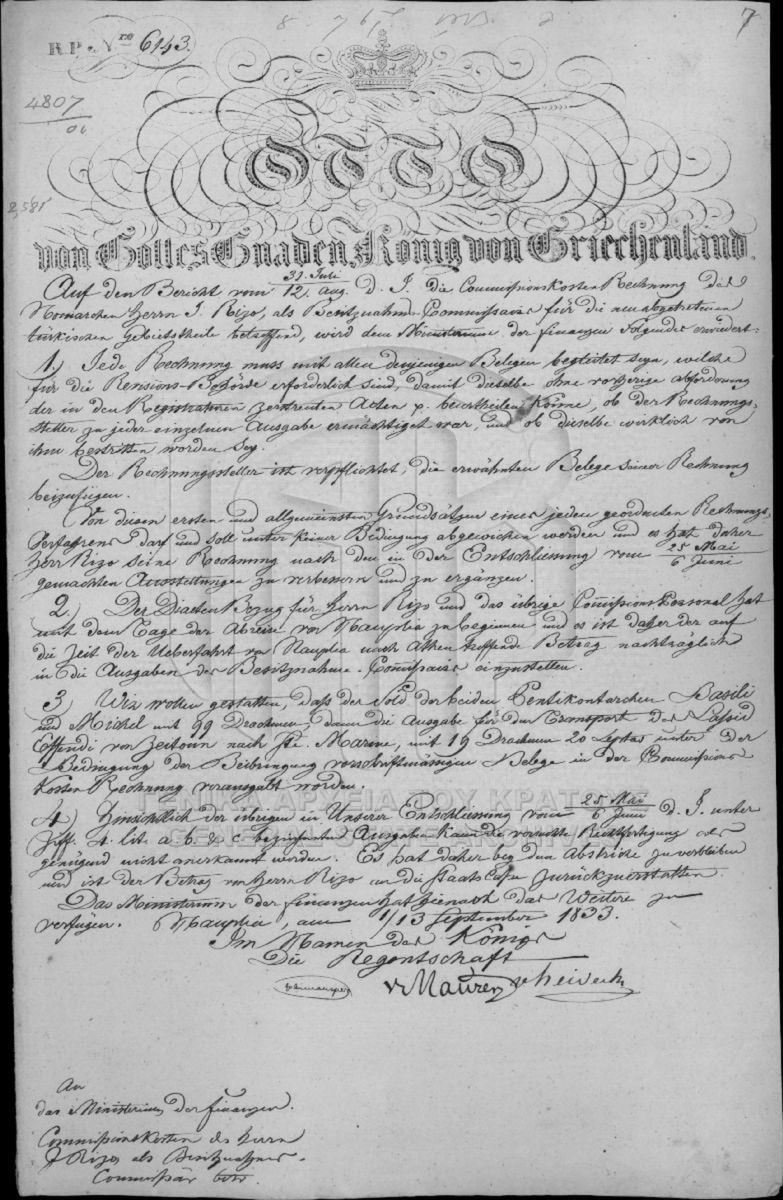 7
R.P. Nro 6143.
4807
2,581
OTTO
von Gottes Gnaden, König von Griechenland.
31. Juli
Auf den Bericht vom 12. Aug. d. J. die Commissionskosten Rechnung des
Nomarchen Herrn J. Rizo, als Besitznahms-Commissärs für die neu abgetretenen
türkischen Gebietstheile betreffend, wird dem Ministerium der Finanzen Folgendes erwiedert:
1.) Jede Rechnung muss mit allen denjenigen Belegen begleitet seyn, welche
für die Revisions-Behörde erforderlich sind, damit dieselbe ohne vorherige Abforderung
der in den Registraturen zerstreuten Acten p. beurtheilen könne, ob der Rechnungs-
steller zu jeder einzelnen Ausgabe ermächtiget war, und ob dieselbe wirklich von
ihm bestritten worden sey.
Der Rechnungssteller ist verpflichtet, die erwähnten Belege seiner Rechnung
beizufügen.
Von diesem ersten und allgemeinsten Grundsatze eines jeden geordneten Rechnungs-
Verfahrens darf und soll unter keiner Bedingung abgewichen werden und es hat daher
Herr Rizo seine Rechnung nach den in der Entschliessung vom 25 Mai
6 Juni
gemachten Ausstellungen zu verbessern und zu ergänzen.
2.) Der Diaeten Bezug für Herrn Rizo und das übrige Commissions Personal hat
mit dem Tage der Abreise von Nauplia zu beginnen und es ist daher der auf
die Zeit der Ueberfahrt von Nauplia nach Athen treffende Betrag nachträglich
in die Ausgaben des Besitznahme-Commissärs einzustellen.
3.) Wir wollen gestatten, daß der Sold der beiden Pentikontarchen Basili
und Michel mit 99 Drachmen, dann die Ausgabe für den Transport des Saßid
Effendi von Zeitoun nach Ste. Marine, mit 19 Drachmen 20 Leptas unter der
Bedingung der Beibringung vorschriftmässigen Belege in der Commissions
Kosten Rechnung verausgabt werden.
4.) Hinsichtlich der übrigen in Unserer Entschliessung vom 25. Mai
6 Juni d. J. unter
Ziff. 4. lit. a. b. & c. bezeichneten Ausgaben kann die versuchte Rechtfertigung als
genügend nicht anerkannt werden. Es hat daher bey dem Abstriche zu verbleiben
und ist der Betrag von Herrn Rizo an die Staats Casse zurückzuerstatten.
Das Ministerium der Finanzen hat hienach das Weitere zu
verfügen. Nauplia, am 1/13 September 1833.
Im Namen des Königs
Die Regentschaft
v Maurer v Heideck
An
das Ministerium der Finanzen.
Commissionskosten des Herrn
J Rizo als Besitznahms-
Commissär betr.
ΓΕΝΙΚΑ ΑΡΧΕΙΑ ΤΟΥ ΚΡΑΤΟΥΣ
GENERAL STATE ARCHIVES